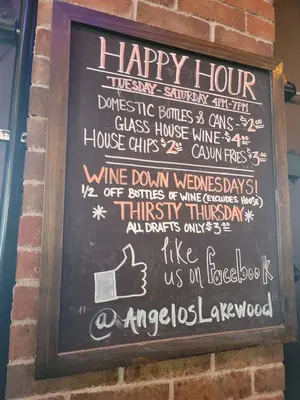 HAPPY HOUR
TUESDAY - SATURDAY 4PM-7PM
DOMESTIC BOTTLES & CANS - $2.00
GLASS HOUSE WINE - $4.00
HOUSE CHIPS $2.50 CAJUN FRIES $3.50
WINE DOWN WEDNESDAYS!
1/2 OFF BOTTLES OF WINE (EXCLUDES HOUSE)
* THIRSTY THURSDAY *
ALL DRAFTS ONLY $3.00
like
us on facebook
@AngelosLakewood